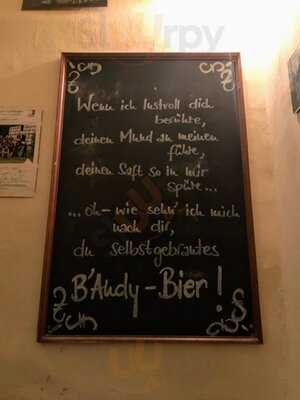 Wenn ich lustvoll dich
berühre,
deinen Mund an meinen
führe,
deinen Saft so in mir
spüre...
...oh - wie sehn' ich mich
nach dir,
du selbstgebrautes
B'Andy - Bier!